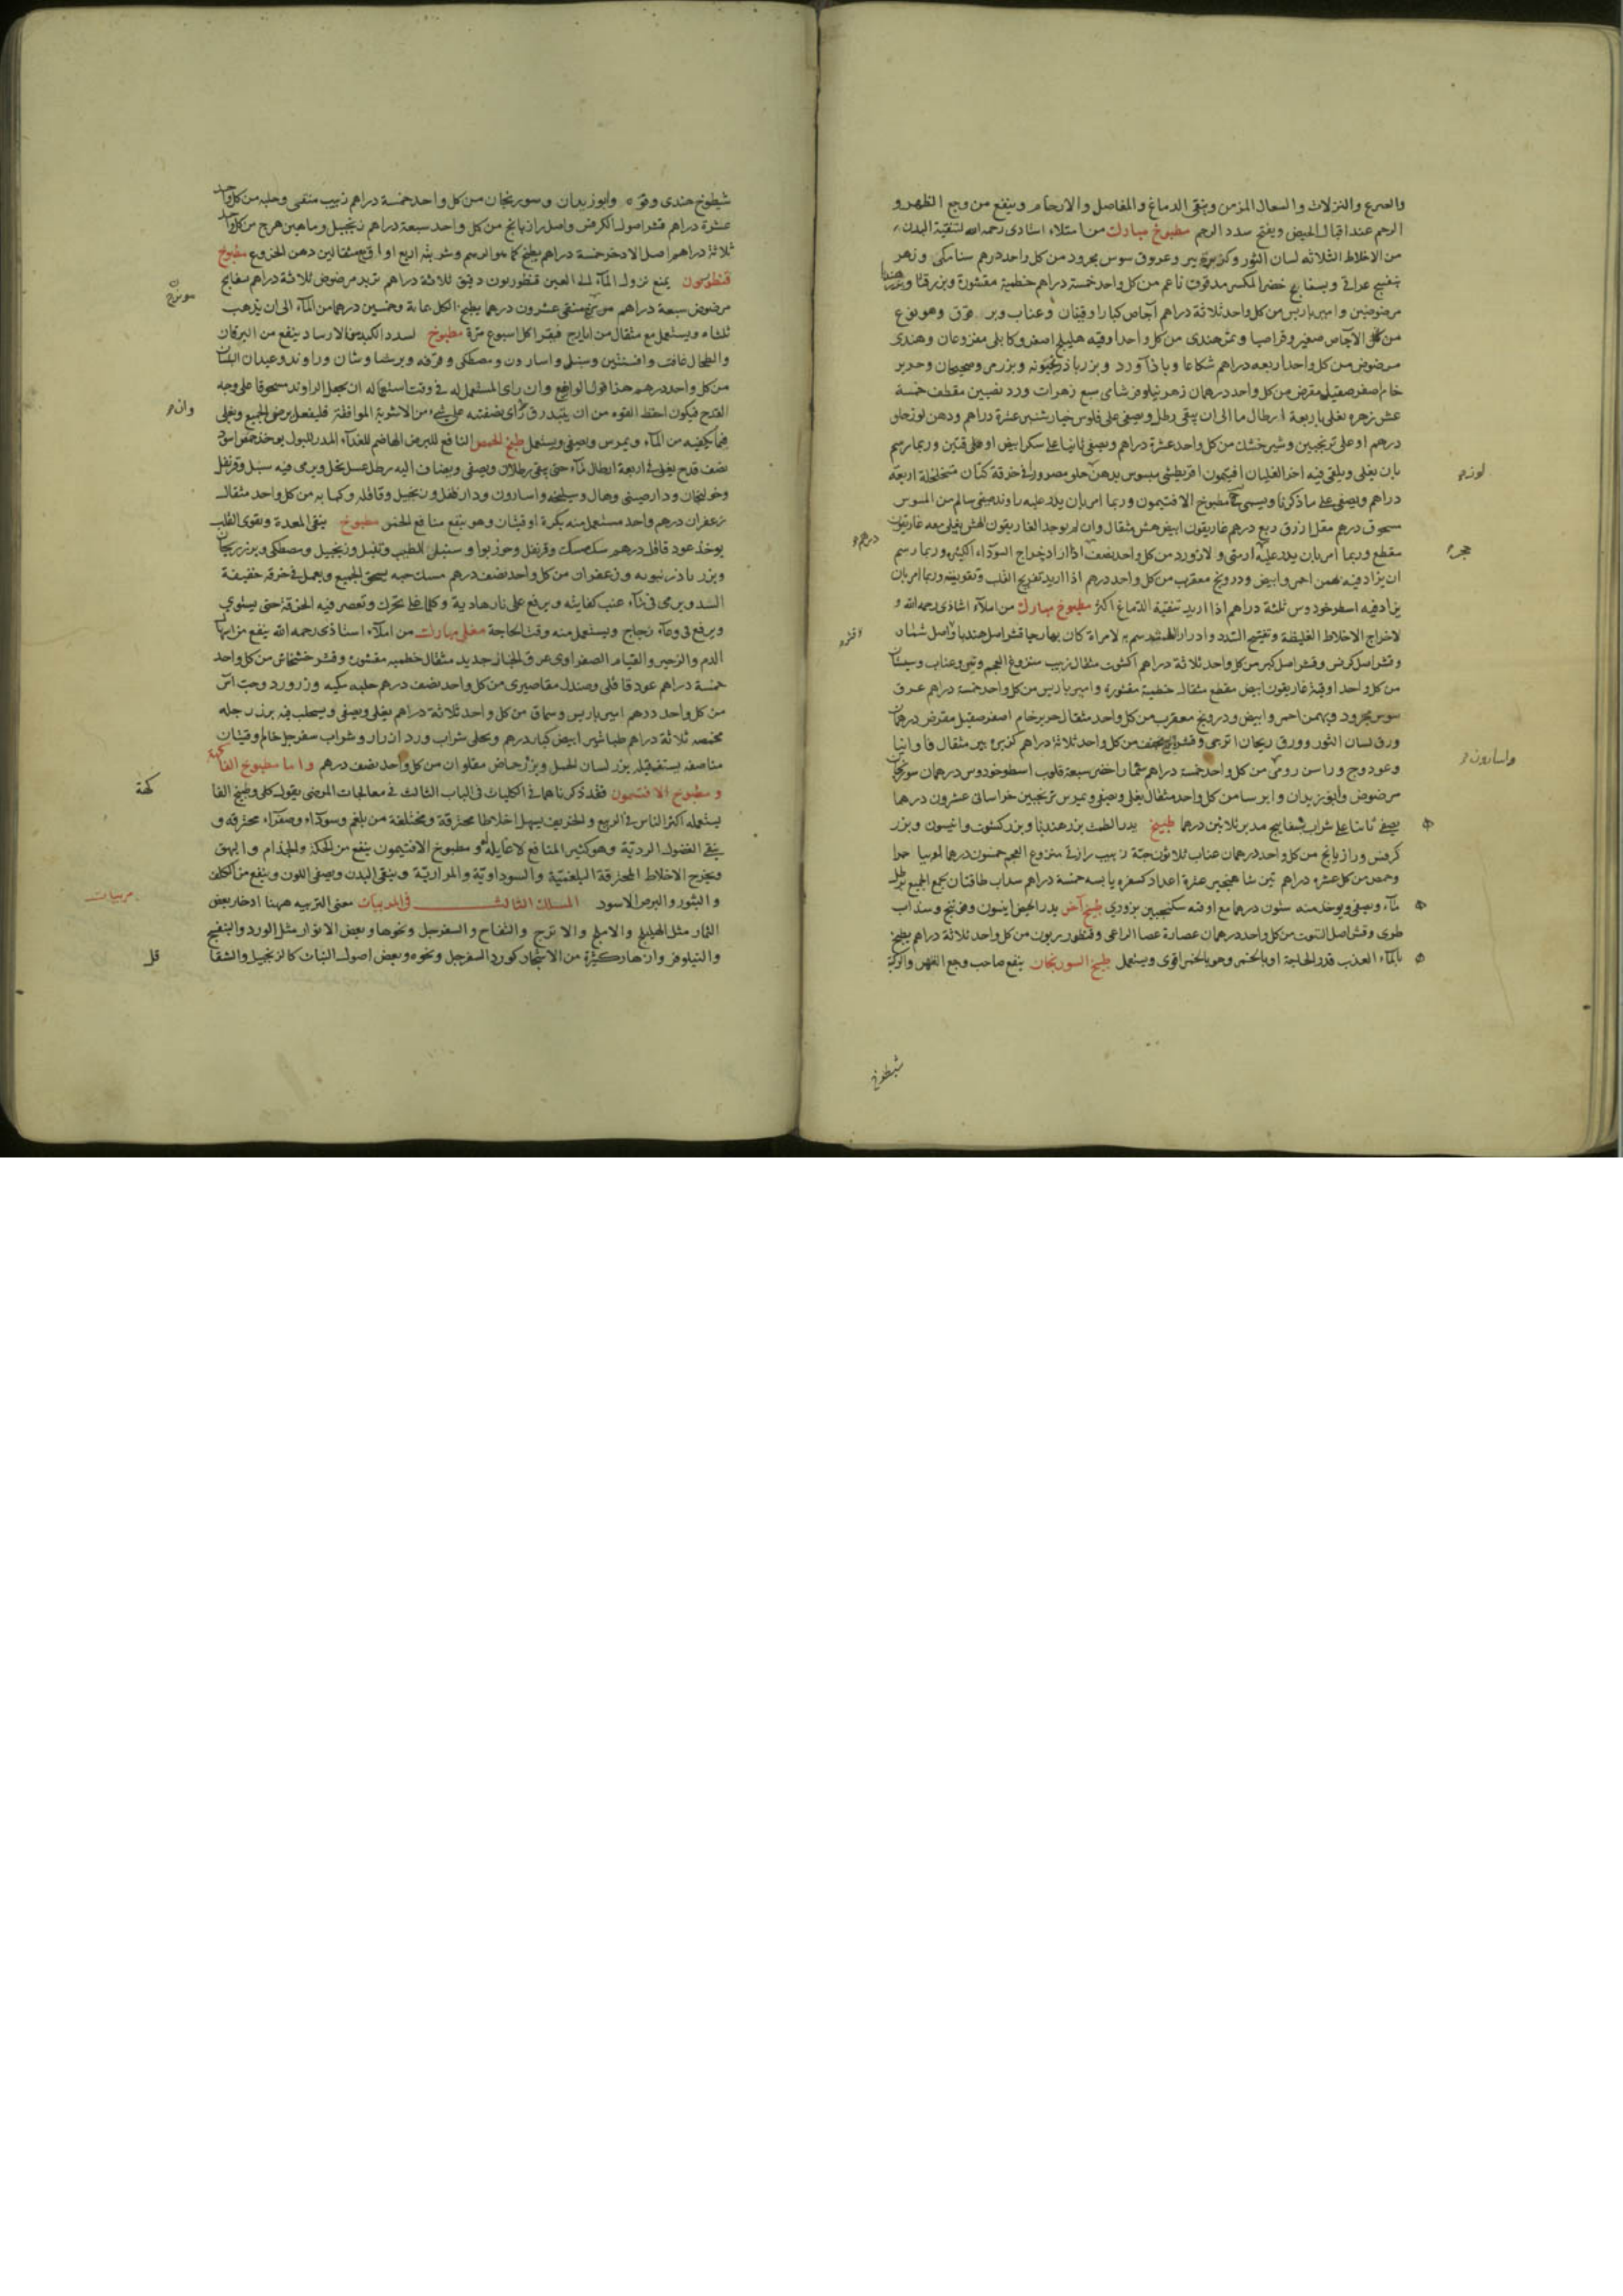 والصرع والنزلات والسعال المزمن وينقي الدماغ والمفاصل والارحام وينفع من وجع الظهر و
الرحم عند اقبال الحيض ويفتح سدد الرحم مطبوخ مبارك من املاء استادى رحمه الله لتنقية البدن
من الاخلاط الثلاثه لسان الثور وكزبرة بير وعروق سوس مجرود من كل واحد درهم سنامكى وزهر
بنفسج عراقى وبسفايج خضر المكسر مدقوق ناعم من كل واحد خمسة دراهم خطمية مقشورة وبزر قثا و
مرضوضين وامبرباريس من كل واحد ثلاثة دراهم آجاص كبار اوقيتان وعناب
من الاجاص صغير وقراصيا وتمر هندى من كل واحد اوقيه هليلج اصفر وكابلى منزوعان وهندى
مرضوض من كل واحد اربعه دراهم شكاعا وباذآورد وبزر باذرنجبويه وبزر مر وصحيحان وحرير
خام اصفر صقيل مقرض من كل واحد درهمان زهر نيلوفر شامى سبع زهرات ورد نصيبين مقطف خمسة
عشر زهره تغلى باربعة ارطال ما الى ان يبقى رطل ويصفى على فلوس خيار شنبر عشرة دراهم ودهن لوز حلو
درهم او على ترنجبين وشير خشك من كل واحد عشرة دراهم ويصفى ثانيا على سكر ابيض او على قندين وربما رسم
بان يغلى ويلقى فيه اخر الغليان افتيمون اقريطشى مبسوس بدهن حلو مصرور فى خرقة كتان متخلخلة اربعة
دراهم ويصفى على ما ذكرنا ويسمى مطبوخ الافتيمون وربما امر بان يذر عليه راوند صينى سالم من السوس
مسحوق درهم مقل ازرق ربع درهم غاريقون ابيض هش مثقال وان لم يوجد الغاريقون الهش يغلى معه غاريقون
مقطع وربما امر بان يذر عليه ارمنى ولازورد من كل واحد نصف اذا اراد اخراج السوداء اكثر وربما رسم
ان يزاد فيه بهمن احمر وابيض ودرونج معقرب من كل واحد درهم اذا اريد تفريح القلب وتقويته وربما امر بان
يزاد فيه اسطوخودوس ثلثة دراهم اذا اريد تنقية الدماغ اكثر مطبوخ مبارك من املآء استاذى رحمه الله و
لاخراج الاخلاط الغليظة وتفتيح السدد وادرار الطمث رسم به لامراة كان بها رحا قشر اصل هندبا واصل
وقشر اصل كرفس وقشر اصل كبر من كل واحد ثلاثة دراهم اكشوث مثقال زبيب منزوع العجم وتين وعناب وسبستان
من كل واحد اوقية غاريقون ابيض مقطع مثقال خطمية مقشورة وامبرباريس من كل واحد خمسة دراهم عرق
سوس مجرود وبهمن احمر وابيض ودرونج معقرب من كل واحد مثقال حرير خام اصفر صقيل مقرض درهمان
ورق لسان الثور وورق ريحان اترجى وقشر من كل واحد ثلاثة دراهم كزبرة بير مثقال فاوانيا
وعود وج وراسن رومى من كل واحد خمسة دراهم شمار اخضر سبعة قلوب اسطوخودوس درهمان سورنجان
مرضوض وابوزيدان وايرسا من كل واحد مثقال يغلى ويصفى ويمرس ترنجبين خراسانى عشرون درهما
يصفى ثانيا على شراب بسفايج مدبر ثلاثين درهما طبيخ يدر الطمث بزر هندبا وبزر كشوث وانيسون وبزر
كرفس ورازيانج من كل واحد درهمان عناب ثلاثون حبة زبيب رازقى منزوع العجم خمسون درهما لوبيا حمرا
وحمص من كل عشره دراهم تين عشرة اعداد كسفره يابسه خمسة دراهم سداب طاقتان يجمع الجميع برطل
مآء ويصفى ويوخذ منه ستون درهما مع اوقيه سكنجبين بزورى طبيخ آخر يدر الحيض انيسون وفوتنج وسداب
طرى وقشر اصل التوت من كل واحد درهمان عصارة عصا الراعى وقنطوريون من كل واحد ثلاثة دراهم يطبخ
بالمآء العذب قدر الحاجة او بالخمر وهو بالخمر اقوى ويستعمل طبيخ السورنجان ينفع صاحب وجع الظهر والركبة
لوز
حجر
واسارون
درهم
وقشر
شيطرج
شيطرج هندى وفوه وابوزيدان وسورنجان من كل واحد خمسة دراهم زبيب منقى وحلبه من كل واحد
عشرة دراهم قشر اصول الكرفس واصل رازيانج من كل واحد سبعة دراهم زنجبيل وماهيزهرج من كل واحد
ثلاثة دراهم اصل الاذخر خمسة دراهم يطبخ كما هو الرسم وشربته اربع اواق مع مثقالين دهن الخروع مطبوخ
قنطوريون يمنع نزول المآء الى العين قنطوريون دقيق ثلاثة دراهم تربد مرضوض ثلاثة دراهم بسفايج
مرضوض سبعة دراهم مويزج منقى عشرون درهما يطبخ الكل بماية وخمسين درهما من المآء الى ان يذهب
ثلثاه ويستعمل مع مثقال من ايارج فيقرا كل اسبوع مرة مطبوخ لسدد الكبد ينفع من اليرقان
والطحال غافت وافسنتين وسنبل واسارون ومصطكى وقرفه وبرشياوشان وراوند وعيدان البلسان
من كل واحد درهم هذا قول الواضع وان راى المستعمل له فى وقت استعماله ان يجعل الراوند مسحوقا على وجه
القدح فيكون احفظ لقوه من ان يتبدر ق راى يضفته على شىء من الاشربة الموافقة فليفعل يرض الجميع ويغلى
فيما يكفيه من المآء ويمرس ويصفى ويستعمل طبيخ الحمص النافع للبرص الهاضم للغذآء المدر للبول يوخذ حمص اسود
نصف قدح يغلى فى اربعة ارطال مآء حتى يبقى رطلان ويصفى ويضاف اليه رطل عسل نحل ويرمى فيه سنبل وقرنفل
وخولنجان ودارصينى وهال وسليخه واسارون ودارفلفل وزنجبيل وقاقله وكبابه من كل واحد مثقال
زعفران درهم واحد مستعمل منه بكرة اوقيتان وهو ينفع منافع الخمر مطبوخ ينقى المعدة ويقوى القلب
يوخذ عود قاقلى درهم سك مسك وقرنفل وجوزبوا وسنبل الطيب وفلفل وزنجبيل ومصطكى وبزر ريحان
وبزر باذرنبويه وزعفران من كل واحد نصف درهم مسك حبه يسحق الجميع ويعمل فى خرقة خفيفة
الشد ويرمى فى مآء عنب كفايته ويرفع على نار هادية وكلما غلى تحرك وتعصر فيه الخرقة حتى يستوى
ويرفع فى وعآء زجاج ويستعمل منه وقت الحاجة مغلى مبارك من املآء استاذى رحمه الله ينفع من اسهال
الدم والزحير والقيام الصفراوى عرق انجبار جديد مثقال خطميه مقشوره وقشر خشخاش من كل واحد
خمسة دراهم عود قاقلى وصندل مقاصيرى من كل واحد نصف درهم حلبه وزرورد وحب آس
من كل واحد درهم امبرباريس وسماق من كل واحد ثلاثة دراهم يغلى ويصفى ويستحلب فيه بزر رجله
محمصه ثلاثة دراهم طباشير ابيض كبار درهم ويحلى شراب ورد ازرار وشراب سفرجل خام اوقيتان
مناصفه يستف قبله بزر لسان الحمل وبزر حماض مقلوان من كل واحد نصف درهم واما مطبوخ الفاكهة
و مطبوخ الافتيمون فقد ذكرناهما فى الكليات فى الباب الثالث فى معالجات المرضى بقول كلى وطبيخ الفا
يستعمله اكثر الناس فى الربيع والخريف يسهل اخلاطا محترقة ومختلفة من بلغم وسودآء وصفرآء محترقه و
ينقى الفضول الرديّة وهو كثير المنافع لا غايله له و مطبوخ الافتيمون ينفع من الحكة والجذام والبهق
ويخرج الاخلاط المحترقة البلغميّة والسوداويّة والمراريّة وينقى البدن ويصفى اللون وينفع من الكلف
والبثور والبرص الاسود المسلك الثالث فى المربيات معنى التربيه ههنا ادخار بعض
الثمار مثل الهليلج والاملج والاترج والتفاح والسفرجل ونحوها وبعض الانوار مثل الورد والبنفسج
والنيلوفر وازهار كثيرة من الاشجار كورد السفرجل ونحوه وبعض اصول النبات كالزنجبيل والشقا
مويزج
وان
كهة
مربيات
قل